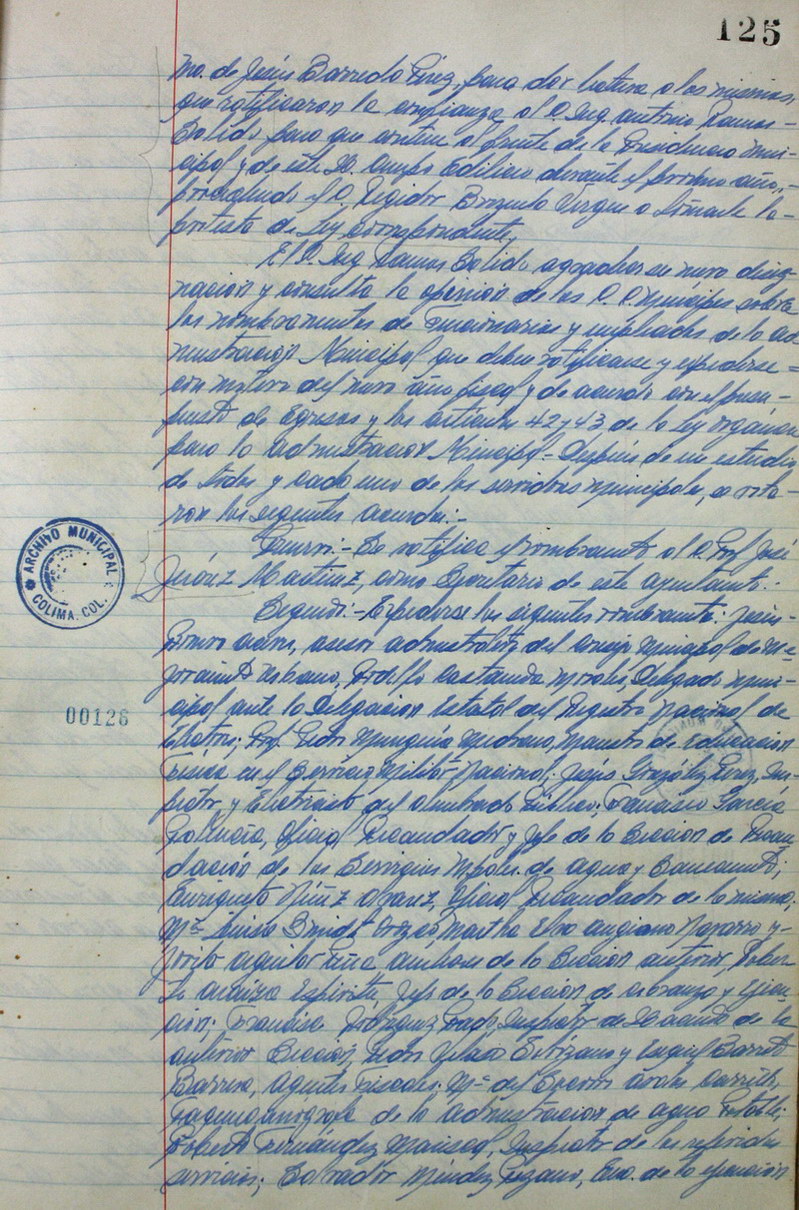 125
Ma. de Jesús Barreda Pérez, para dar lectura a los mismos,
que ratificaron la confianza al C. Ing. Antonio Ramos
Salido para que continue al frente de la Presidencia Muni-
cipal y de este H. Cuerpo Edilicio durante el próximo año,-
procediendo el C. Regidor Brizuela Virgen a tomarle la-
protesta de Ley correspondiente.
El C. Ing. Ramos Salido agradece su nueva desig-
nación y consulta la opinión de los C.C. Munícipes sobre
los nombramientos de Funcionarios y empleados de la ad
ministración Municipal que deben ratificarse y expedirse=
con motivo del nuevo año fiscal y de acuerdo con el presu-
puesto de Egresos y los artículos 42 y 43 de la Ley orgánica
para la administración Municipal.- Después de un estudio
de todos y cada uno de los servidores municipales, se toma-
ron los siguientes acuerdos:-
Primero:- Se ratifica el nombramiento al C. Prof. José
Juárez Martínez, como Secretario de este ayuntamiento.-
Segundo:- Expedirse los siguientes nombramientos: Jesús-
Romero, asesor administrativo del Consejo Municipal de Me-
joramiento Urbano, Rodolfo Castañeda Morales, Delegado Muni-
cipal ante la Delegación Estatal del Registro Nacional de
Electores; Prof. Pedro Munguía Medrano, Maestro de Educación
Física en el Servicio Militar Nacional; Jesús González Pérez, Ins-
pector y Electricista del Alumbrado Público; Francisco García
Oficial Recaudador y Jefe de la Sección de Recau
dación de los Servicios Mpales. de agua y Saneamiento;
Enriqueta Núñez Oficial Recaudador de la misma;
Ma. Luisa Martha Elva Anguiano Navarro y-
Aguilar auxiliares de la Sección anterior,
Espíritu, Jefe de la Sección de cobranza y Ejecu-
ción; Francisco Rodríguez Inspector de de la
anterior Sección, Pedro Velasco y
Barrera, Agentes Fiscales; Ma. del
taquimecanógrafa de la administración de agua Potable;
Roberto Fernández Mariscal, Inspector de los referidos
servicios; Salvador Méndez Lozano, Enc. de la operación
ARCHIVO MUNICIPAL
COLIMA, COL.
00126